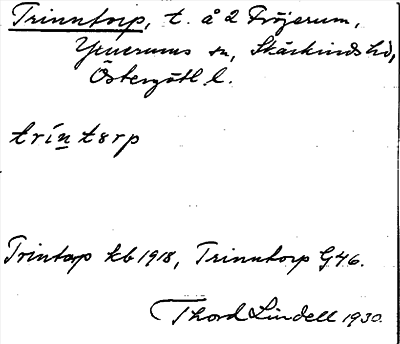 Trinntorp, t. å 2 Fröjerum,
Yxnerums sn, Skärkinds hd,
Östergötl l.
tríntorp
Trintorp kb 1918, Trinntorp G46.
Thord Lindell 1930.